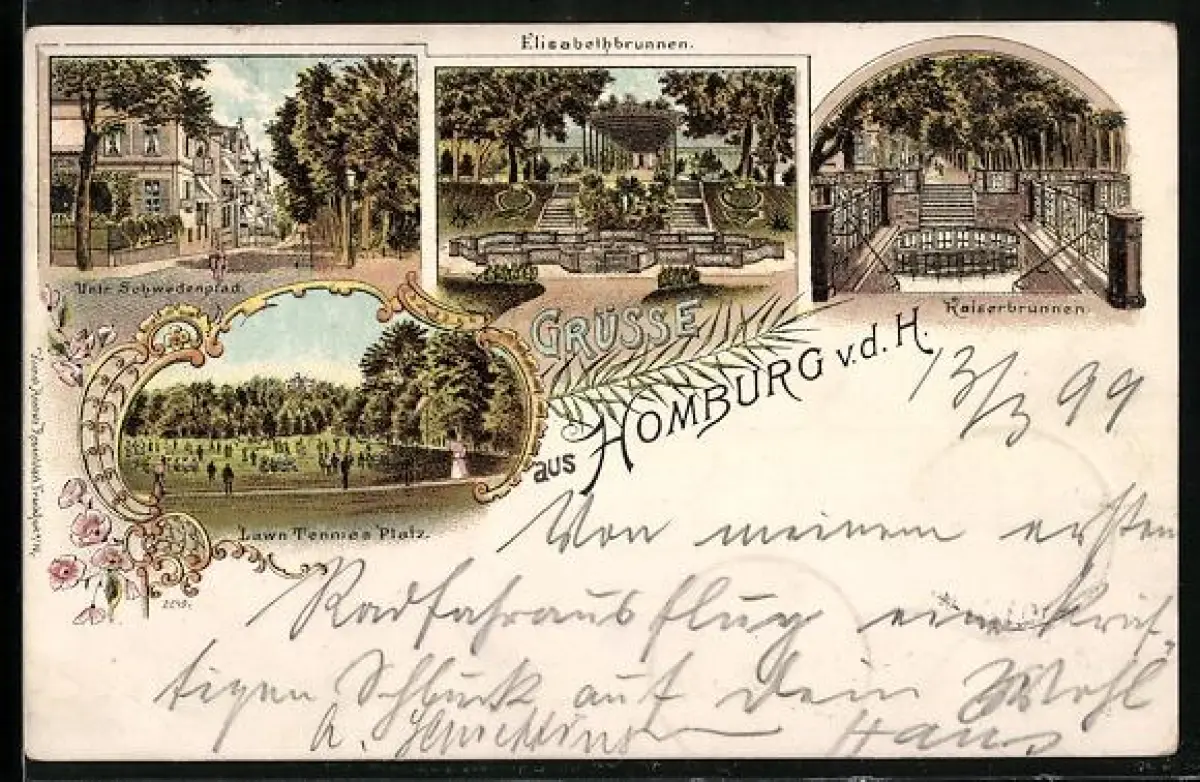 Elisabethbrunnen.
Untr Schwedenpfad.
Kaiserbrunnen.
GRÜSSE
aus HOMBURG v. d. H.
Lawn Tennies Platz.
13/ 99
Von meinem ersten
Radfahrausflug ein kräf-
tigen Schluck auf dein Wohl
Hans